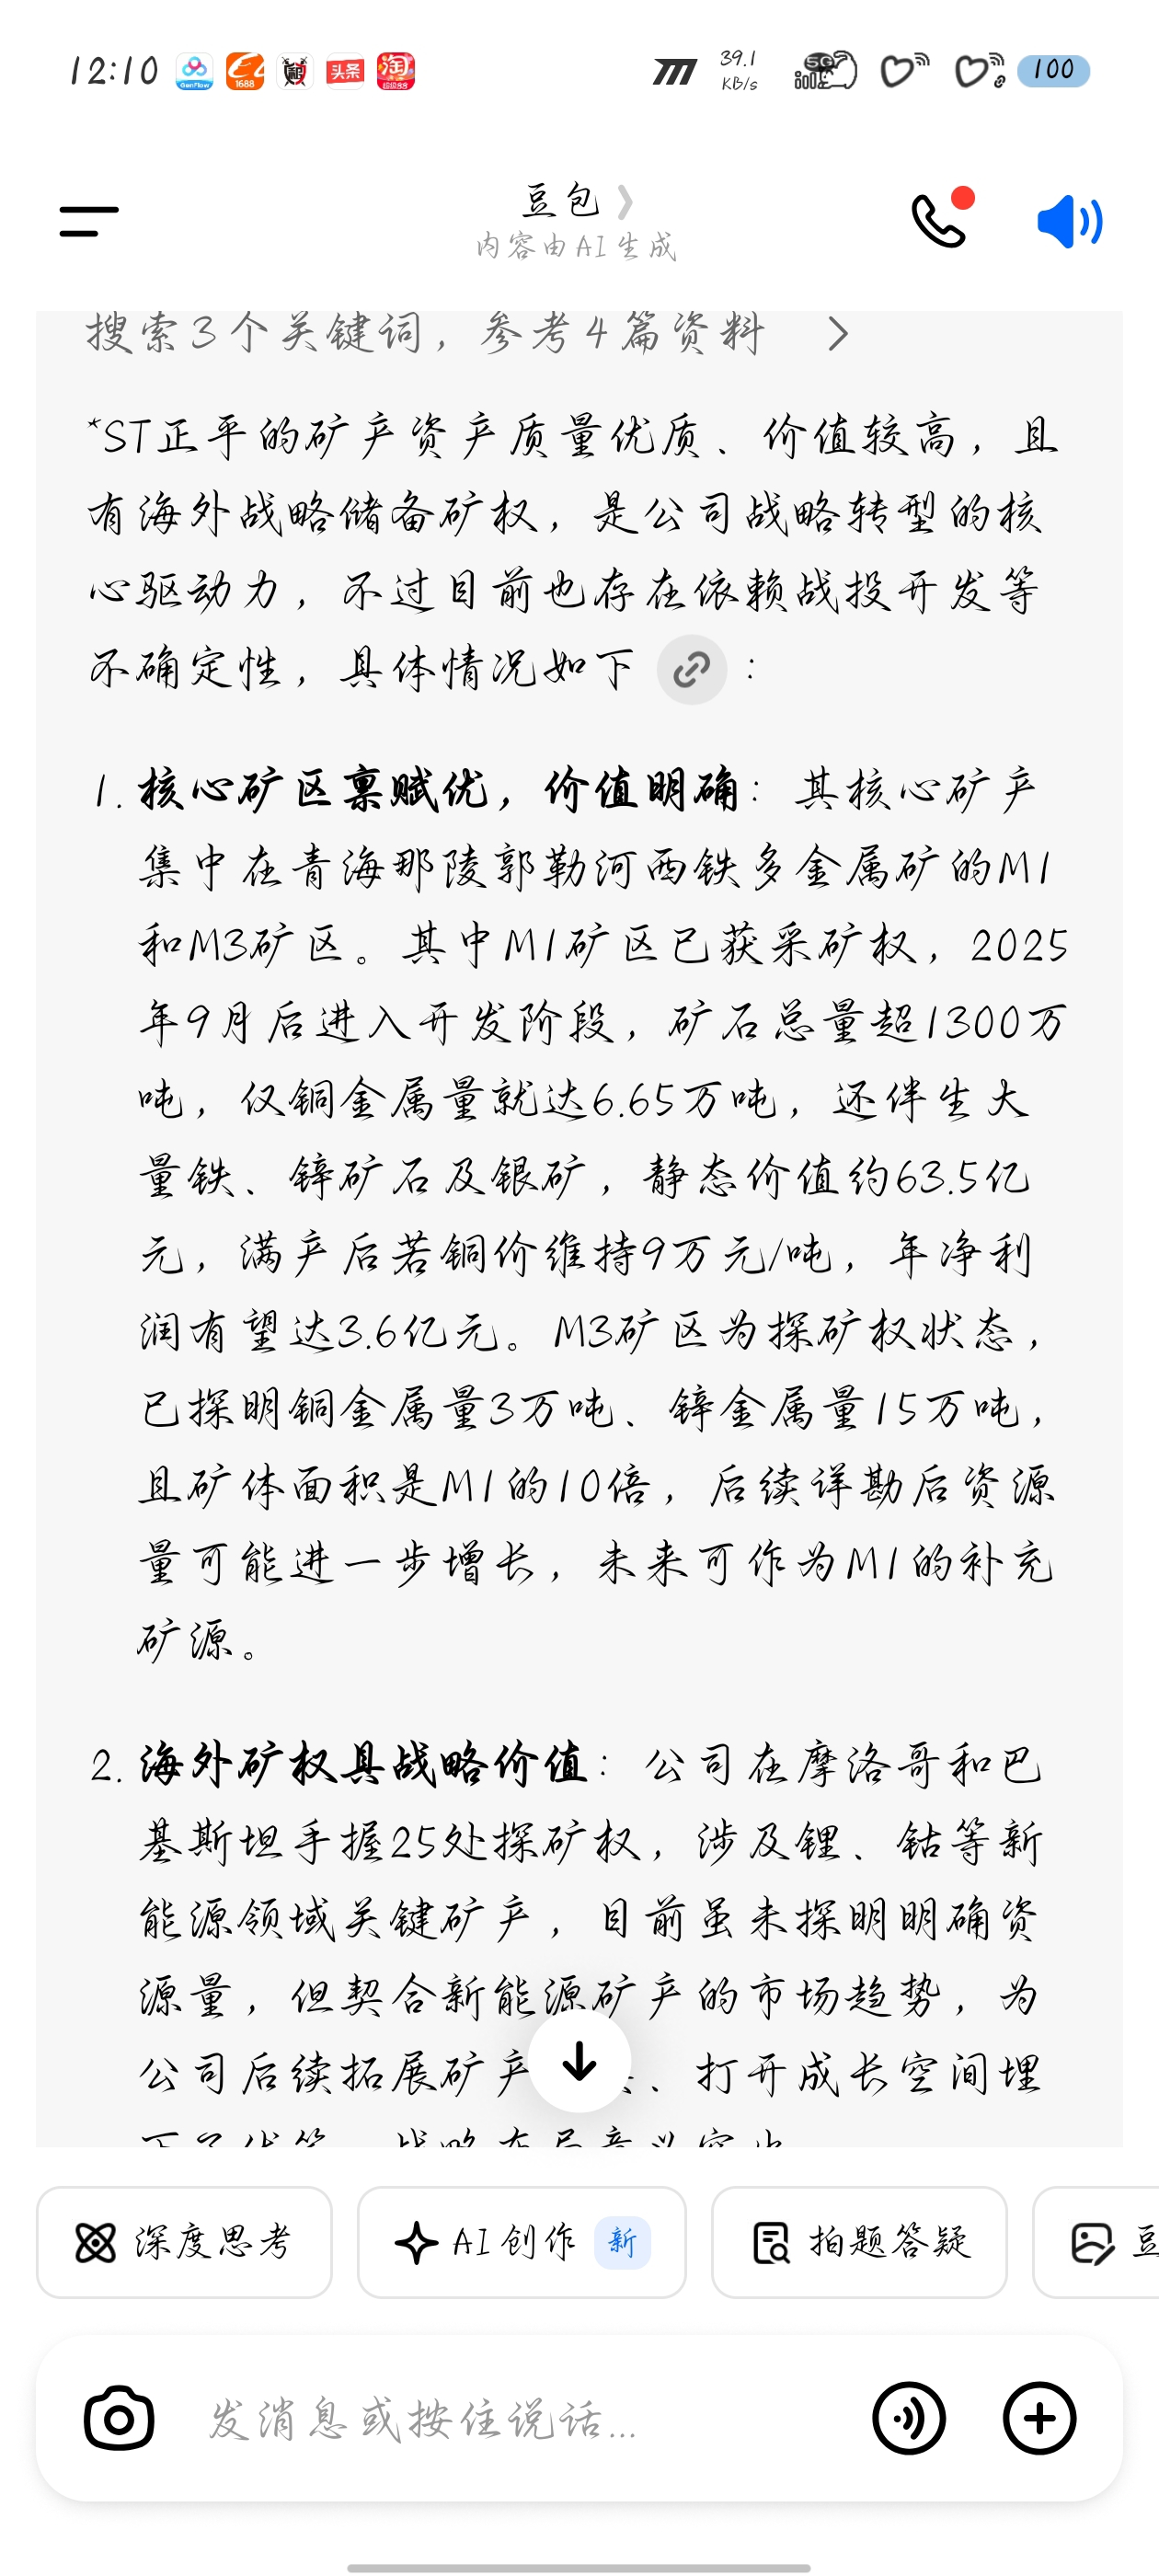 12:10
GenFlow
1688
头条
淘
39.1
KB/s
5G
100
豆包
内容由AI生成
搜索3个关键词，参考4篇资料
*ST正平的矿产资产质量优质、价值较高，且
有海外战略储备矿权，是公司战略转型的核
心驱动力，不过目前也存在依赖战投开发等
不确定性，具体情况如下：
1. 核心矿区禀赋优，价值明确：其核心矿产
集中在青海那陵郭勒河西铁多金属矿的M1
和M3矿区。其中M1矿区已获采矿权，2025
年9月后进入开发阶段，矿石总量超1300万
吨，仅铜金属量就达6.65万吨，还伴生大
量铁、锌矿石及银矿，静态价值约63.5亿
元，满产后若铜价维持9万元/吨，年净利
润有望达3.6亿元。M3矿区为探矿权状态，
已探明铜金属量3万吨、锌金属量15万吨，
且矿体面积是M1的10倍，后续详勘后资源
量可能进一步增长，未来可作为M1的补充
矿源。
2. 海外矿权具战略价值：公司在摩洛哥和巴
基斯坦手握25处探矿权，涉及锂、钴等新
能源领域关键矿产，目前虽未探明明确资
源量，但契合新能源矿产的市场趋势，为
公司后续拓展矿产、打开成长空间埋
深度思考
AI创作
新
拍题答疑
豆
发消息或按住说话...